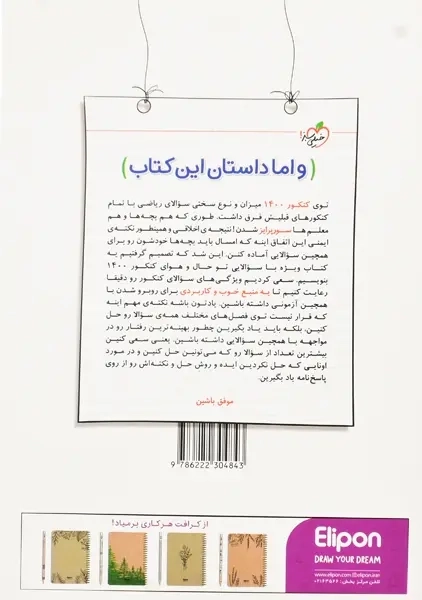 خیلی سبز
(و اما داستان این کتاب)
توی کنکور ۱۴۰۰ میزان و نوع سختی سؤالای ریاضی با تمام
کنکورهای قبلیش فرق داشت. طوری که هم بچه‌ها و هم
معلم‌ها سورپرایز شدن! نتیجه‌ی اخلاقی و همینطور نکته‌ی
ایمنی این اتفاق اینه که امسال باید بچه‌ها خودشون رو برای
همچین سؤالایی آماده کنن. این شد که تصمیم گرفتیم یه
کتاب ویژه با سؤالایی تو حال و هوای کنکور ۱۴۰۰
بنویسیم. سعی کردیم ویژگی‌های سؤالای کنکور رو دقیقا
رعایت کنیم تا یه منبع خوب و کاربردی برای روبرو شدن با
همچین آزمونی داشته باشین. یادتون باشه نکته‌ی مهم اینه
که قرار نیست توی فصل‌های مختلف همه‌ی سؤالا رو حل
کنین. بلکه باید یاد بگیرین چطور بهینه‌ترین رفتار رو در
مواجهه با همچین سؤالایی داشته باشین. یعنی سعی کنین
بیشترین تعداد از سؤالا رو که می‌تونین حل کنین و در مورد
اونایی که حل نکردین ایده و روش حل و نکته‌اش رو از روی
پاسخ‌نامه یاد بگیرین.
موفق باشین
9 786222 304843
از کرافت هر کاری برمیاد!
Elipon
DRAW YOUR DREAM
www.elipon.com
تلفن مرکز پخش: ۰۲۱۶۳۵۶۶